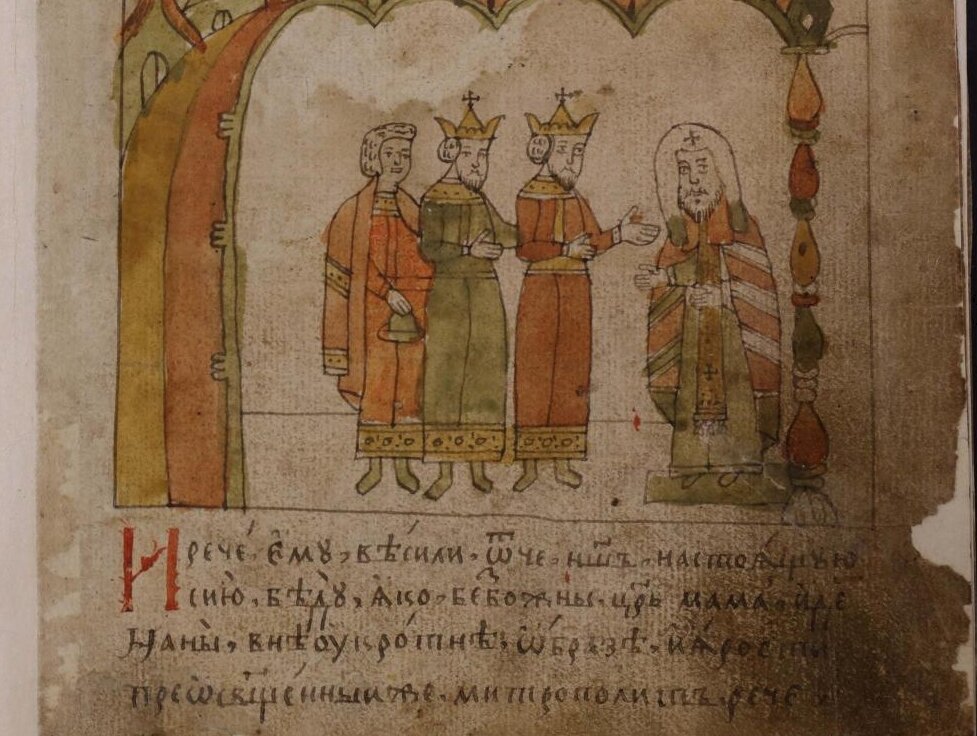 И рече́ є҆му, вѣ́си ли, ѿч҃е нш҃ъ, настоѧ́щую
сию̀, бѣ́ду, ꙗ҆́ко безбо́жны, цр҃ь мама́й, и҆́де
На ны̀, в неѹкро́тнѣ, ѡ҆́бразѣ, и҆ ꙗ҆́рости
преѡсщ҃е́нныи же, митрополи́тъ, рече̑